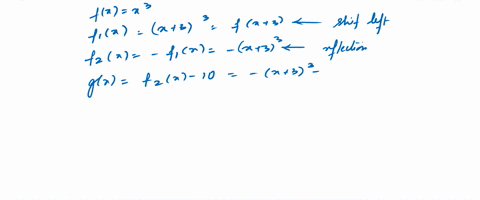 f(x) = x³
f₁(x) = (x+3)³ = f(x+3) ← shif left
f₂(x) = - f₁(x) = -(x+3)³ ← reflection
g(x) = f₂(x) - 10 = -(x+3)³ -